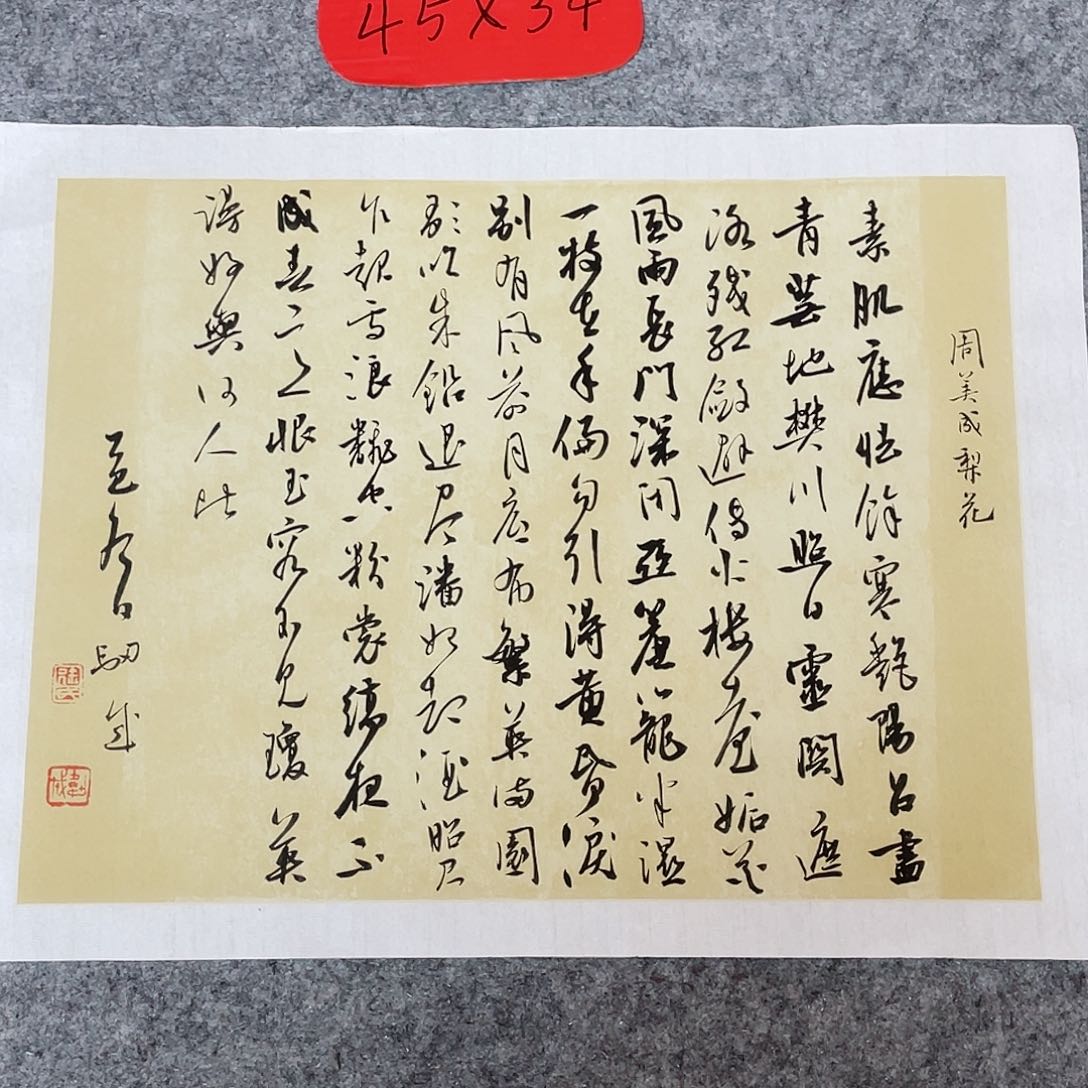 45×34
周美成梨花
素肌應怯餘寒艷陽占盡
青蕪地樊川照日靈關遮
路殘紅斂避傳火樓臺妬花
風雨長門深閉亞簾櫳半濕
一枝在手偏勾引得黃昏淚
別有風前月底布繁英滿園
歌吹朱鉛退盡潘妃却酒昭君
乍起雪浪翻空粉裳縞夜不
成春意恨玉容不見瓊英
謾好與何人比